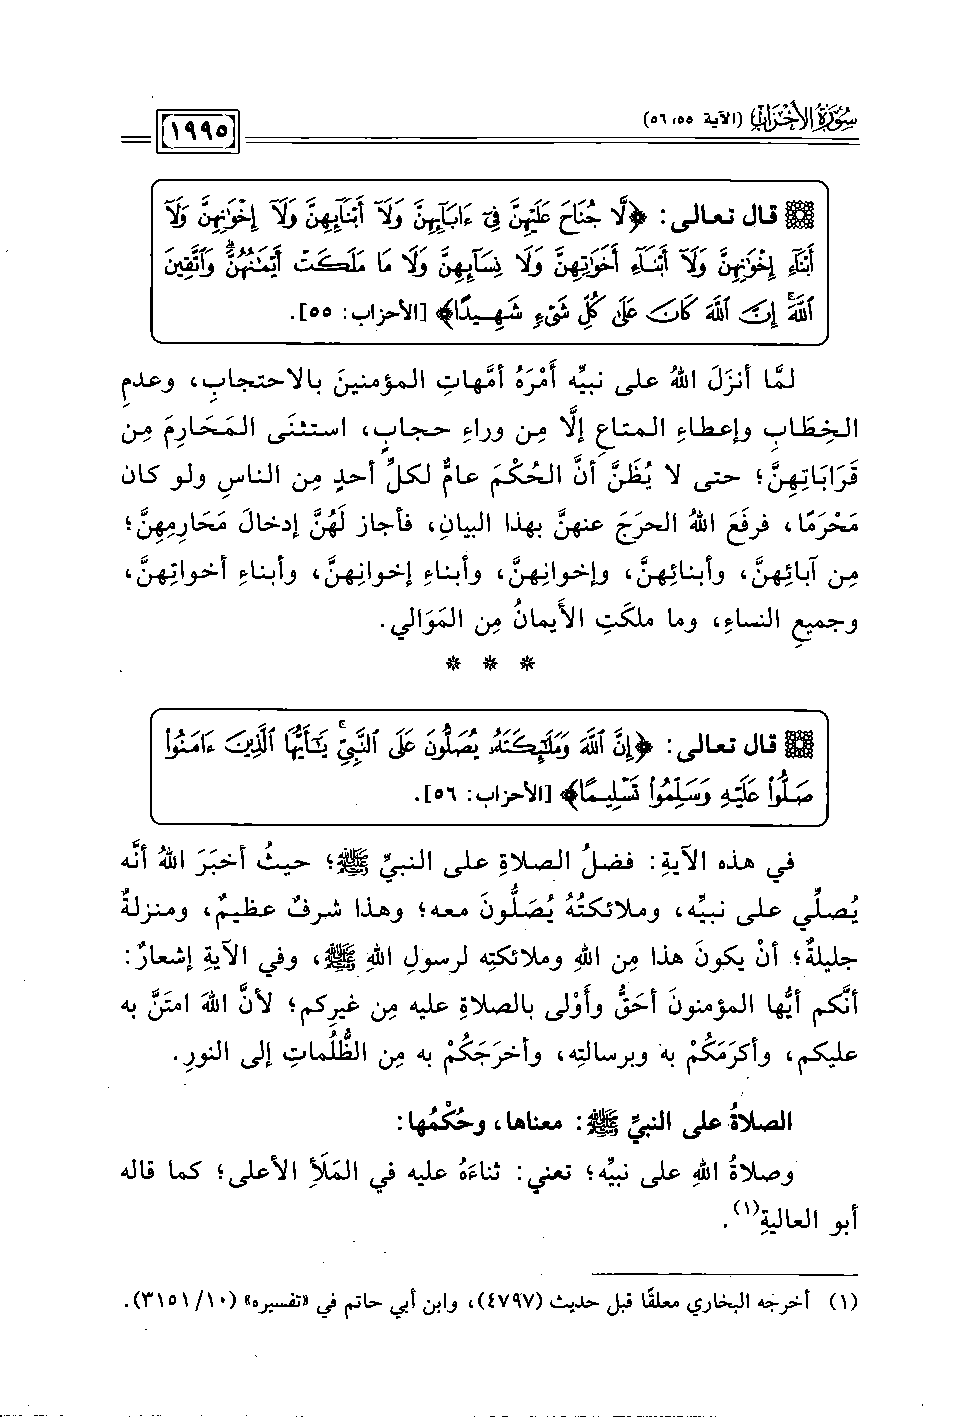 سُورَةُ الأَحْزَابِ (الآية ٥٥، ٥٦)
١٩٩٥
قال تعالى: ﴿لَّا جُنَاحَ عَلَيْهِنَّ فِيٓ ءَابَآئِهِنَّ وَلَآ أَبْنَآئِهِنَّ وَلَآ إِخْوَٰنِهِنَّ وَلَآ
أَبْنَآءِ إِخْوَٰنِهِنَّ وَلَآ أَبْنَآءِ أَخَوَٰتِهِنَّ وَلَا نِسَآئِهِنَّ وَلَا مَا مَلَكَتْ أَيْمَٰنُهُنَّۗ وَٱتَّقِينَ
ٱللَّهَۚ إِنَّ ٱللَّهَ كَانَ عَلَىٰ كُلِّ شَيْءٍ شَهِيدًا﴾ [الأحزاب: ٥٥].
لمَّا أنزَلَ اللهُ على نبيِّه أَمْرَهُ أمَّهاتِ المؤمنينَ بالاحتجابِ، وعدمِ
الخِطَابِ وإعطاءِ المتاعِ إلَّا مِن وراءِ حجابٍ، استثنَى المَحَارِمَ مِن
قَرَابَاتِهِنَّ؛ حتى لا يُظَنَّ أنَّ الحُكْمَ عامٌّ لكلِّ أحدٍ مِن الناسِ ولو كان
مَحْرَمًا، فرفَعَ اللهُ الحرَجَ عنهنَّ بهذا البيانِ، فأجاز لَهُنَّ إدخالَ مَحَارِمِهِنَّ؛
مِن آبائِهنَّ، وأبنائِهنَّ، وإخوانِهنَّ، وأبناءِ إخوانِهنَّ، وأبناءِ أخواتِهنَّ،
وجميعِ النساءِ، وما ملكَتِ الأَيمانُ مِن المَوَالي.
* * *
قال تعالى: ﴿إِنَّ ٱللَّهَ وَمَلَٰٓئِكَتَهُۥ يُصَلُّونَ عَلَى ٱلنَّبِيِّۚ يَٰٓأَيُّهَا ٱلَّذِينَ ءَامَنُوا۟
صَلُّوا۟ عَلَيْهِ وَسَلِّمُوا۟ تَسْلِيمًا﴾ [الأحزاب: ٥٦].
في هذه الآيةِ: فضلُ الصلاةِ على النبيِّ ﷺ؛ حيثُ أخبَرَ اللهُ أنَّه
يُصلِّي على نبيِّه، وملائكتُهُ يُصَلُّونَ معه؛ وهذا شرفٌ عظيمٌ، ومنزلةٌ
جليلةٌ؛ أنْ يكونَ هذا مِن اللهِ وملائكتِه لرسولِ اللهِ ﷺ، وفي الآيةِ إشعارٌ:
أنَّكم أيُّها المؤمنونَ أحَقُّ وأَوْلى بالصلاةِ عليه مِن غيرِكم؛ لأنَّ اللهَ امتَنَّ به
عليكم، وأكرَمَكُمْ به وبرسالتِه، وأخرَجَكُمْ به مِن الظُّلُماتِ إلى النورِ.
الصلاةُ على النبيِّ ﷺ: معناها، وحُكْمُها:
وصلاةُ اللهِ على نبيِّه؛ تعني: ثناءَهُ عليه في المَلَأِ الأعلى؛ كما قاله
أبو العاليةِ(١).
(١) أخرجه البخاري معلقًا قبل حديث (٤٧٩٧)، وابن أبي حاتم في «تفسيره» (١٠/ ٣١٥١).